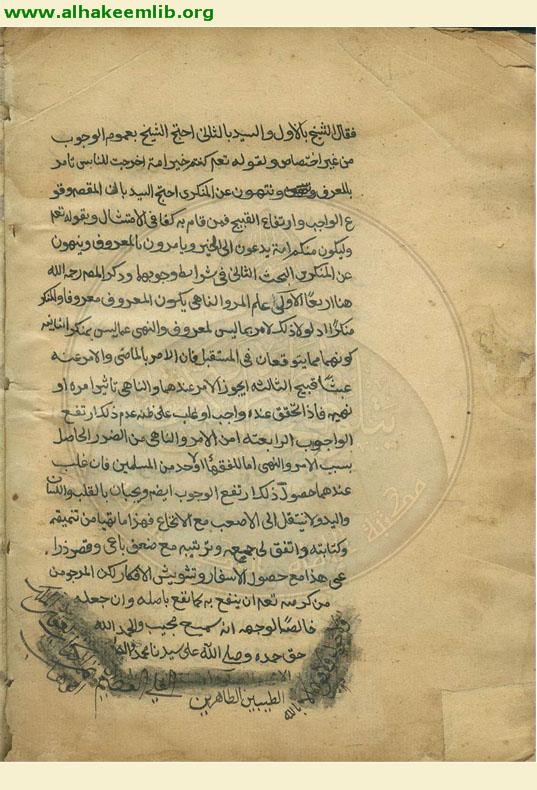 www.alhakeemlib.org
فقال الشيخ بالاول والسيد بالثاني احتج الشيخ بعموم الوجوب
من غير اختصاص ولقوله تعم كنتم خير امة اخرجت للناس تامر
بالمعروف وتنهون عن المنكر احتج السيد بان المقصم وقو
ع الواجب وارتفاع القبيح فمن قام به كفا في الامتثال وبقوله تعم
وليكون منكم امة يدعون الى الخير ويامرون بالمعروف وينهون
عن المنكر البحث الثاني في شرايط وجوبهما وذكر المصر رحمه الله
هنا اربعا الاولى علم الامر والناهي بكون المعروف معروفا والمنكر
منكرا اذ لولا ذلك لامر بما ليس لمعروف والنهي عما ليس بمنكر الثانية
كونهما مما يتوقعان في المستقبل فان الامر بالماضي والامر عنه
عبثا قبيح الثالثه ايجوز الامر عندهما والناهي تاثير امره او
نهيه فاذا تحقق عنده واجب او غلب على ظنه عدم ذلك ارتفع
الواجوب الرابعته امن الامر والناهي من الضرر الحاصل
بسبب الامر والنهي اما للفقهاء او لاحد من المسلمين فان غلب
عندهما حصول ذلك ارتفع الوجوب ايضم ويجبان بالقلب واللسان
واليد ولا ينتقل الى الاصعب مع الانخاع فهذا ما تهيا من تنميقه
وكتابته واتفق لي جمعه وترتيبه مع ضعف باعي وقصر ذرا
عي هذا مع حصول الاسفار وتشويش الافكار لكن المرجو من
من كرمه تعم ان ينفع به كما نفع باصله وان جعله
خالصا لوجهه انه سميع مجيب والحمد الله
حق حمده وصلى الله على سيدنا محمد واله
الطيبين الطاهرين
العلي العظيم
بالله